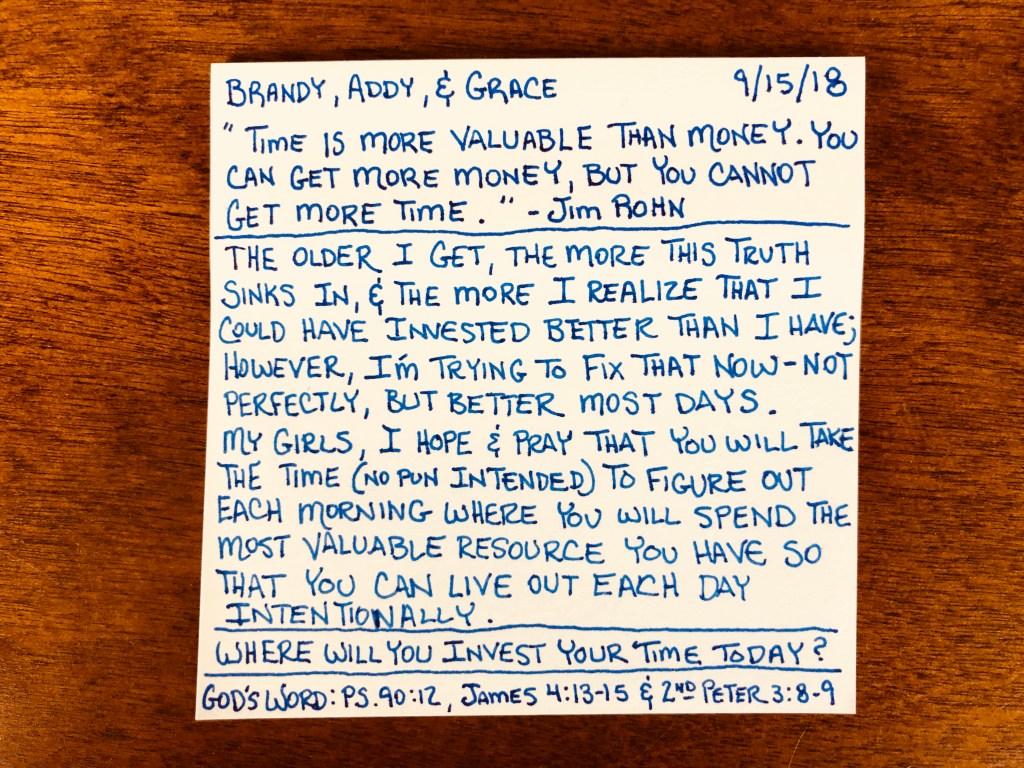 BRANDY, ADDY, & GRACE 9/15/18
"TIME IS MORE VALUABLE THAN MONEY. YOU
CAN GET MORE MONEY, BUT YOU CANNOT
GET MORE TIME." - JIM ROHN
THE OLDER I GET, THE MORE THIS TRUTH
SINKS IN, & THE MORE I REALIZE THAT I
COULD HAVE INVESTED BETTER THAN I HAVE;
HOWEVER, I'M TRYING TO FIX THAT NOW-NOT
PERFECTLY, BUT BETTER MOST DAYS.
MY GIRLS, I HOPE & PRAY THAT YOU WILL TAKE
THE TIME (NO PUN INTENDED) TO FIGURE OUT
EACH MORNING WHERE YOU WILL SPEND THE
MOST VALUABLE RESOURCE YOU HAVE SO
THAT YOU CAN LIVE OUT EACH DAY
INTENTIONALLY.
WHERE WILL YOU INVEST YOUR TIME TODAY?
GOD'S WORD: PS. 90:12, JAMES 4:13-15 & 2ND PETER 3:8-9